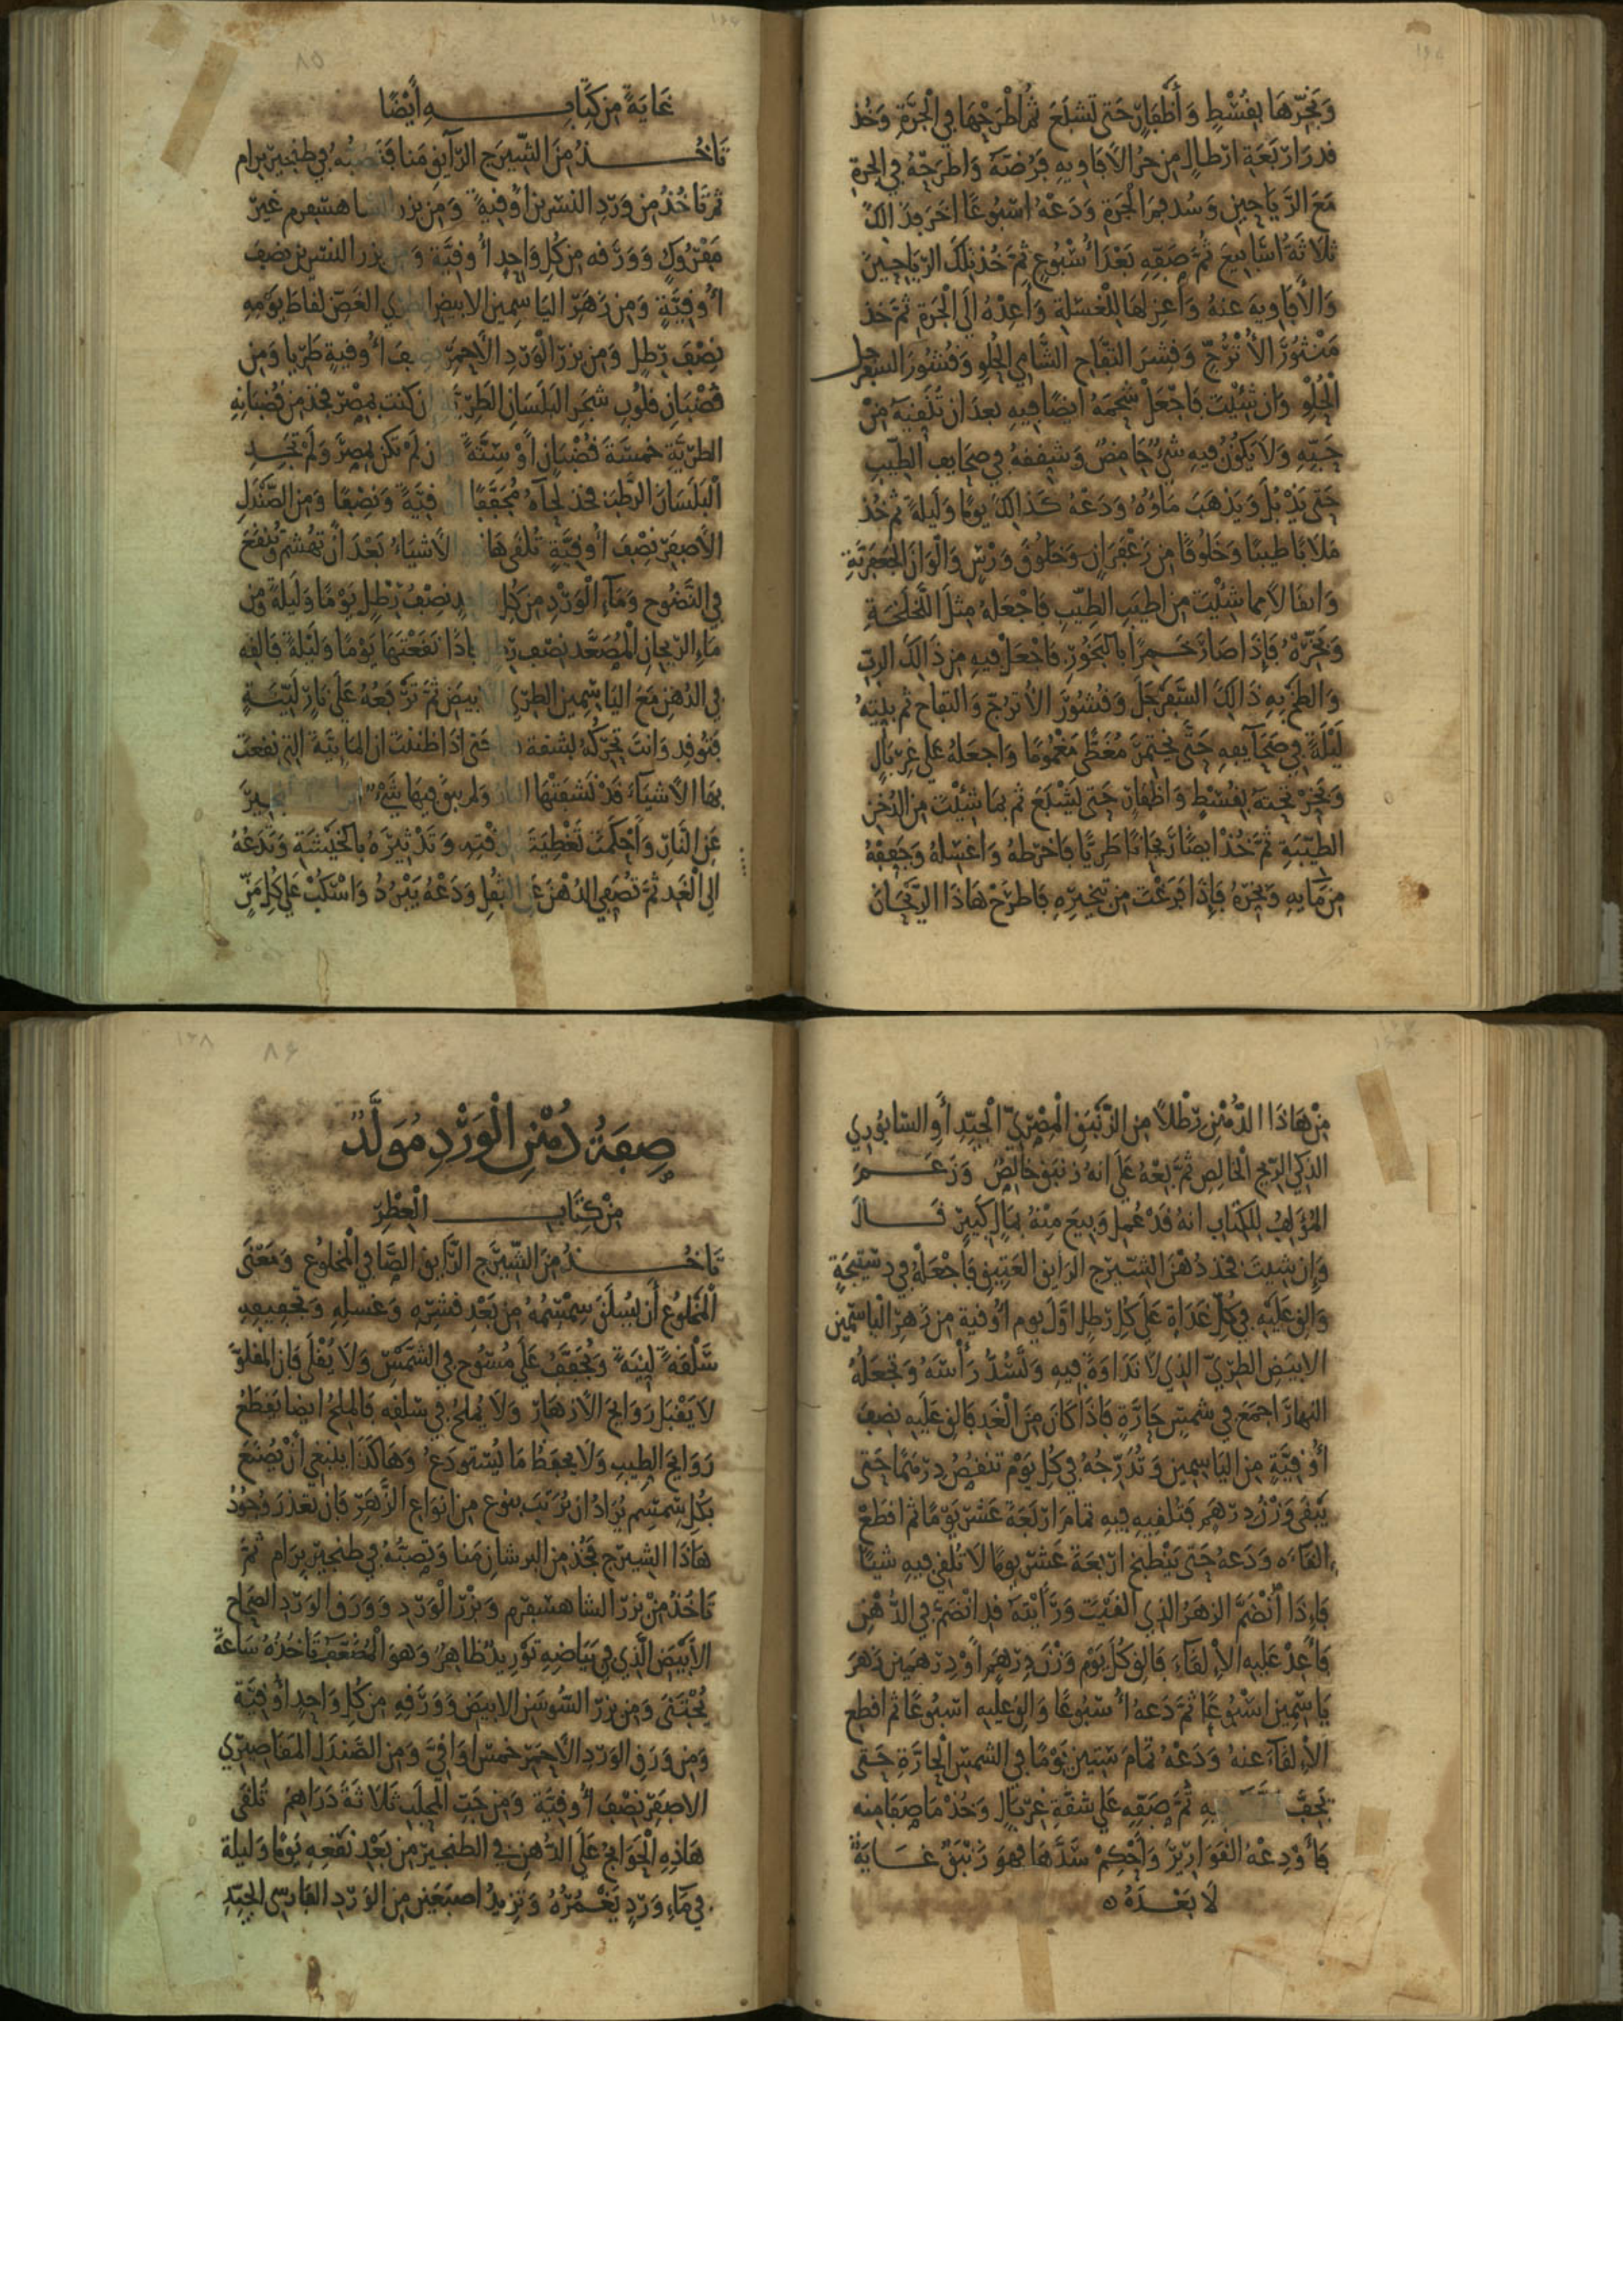 وَبَخِّرْهَا بِقُسْطٍ وَأَظْفَارٍ حَتى تَشْبَعَ ثُمَّ اطْرَحْهَا فِي الْجَرَّةِ وَخُذ
قدرَ ارْبَعَةِ ارْطالٍ مِن حرّ الأفَاوِيهِ فَرُضَّهُ وَاطرَحْهُ فِي الجرة
مَعَ الرَّيَاحِينِ وَسُد فمَ الْجَرةِ وَدَعْهُ اسْبُوعًا اخَرَ فذَالكَ
ثَلاثَةُ اسَابيعَ ثُمَّ صَفِّهِ بَعْدَ أُسْبُوعٍ ثمَّ خُذ تِلكَ الرّيَاحِينَ
وَالأفَاوِيهَ عنهُ وَأعزِلهَا لِلْغسْلَةِ وَأعِدْهُ الَى الْجَرةِ ثمَّ خذ
مَنْثُورَ الأُتْرُجِّ وَقِشرَ التفَّاحِ الشَّامِي الحُلْوِ وَقُشُورَ السفَرجلِ
الْحُلْوِ وَان شِئْتَ فَاجْعَلْ شَحْمَهُ ايضًا فِيهِ بعدَ ان تُنَقيهُ مِنْ
حَبِّهِ وَلا يَكُونُ فيهِ شَيْءٌ حَامِضٌ وَشففهُ فِي صحَايفِ الطِّيبِ
حَتى يَذْبُلَ وَيَذهَبَ مَاؤُهُ وَدَعْهُ كَذَالكَ يَومًا وَليلَةً ثُم خُذ
مَلابًا طيبًا وَخَلُوقًا مِن زَعْفَرَانٍ وَخَلُوقَ وَرْسٍ وَألْوَانَ
وَ مما شِئْتَ مِن اطيَبِ الطِّيبِ فَاجْعَلهُ مِثلَ اللَّخلَخَةِ
وَبَخِّرْهُ فَإذَا صَارَ خَمِيرًا بِالبَخُورِ فَاجْعَلْ فيهِ مِن ذَالكَ الربّ
وَالطَخْ بِهِ ذَالكَ السَّفَرْجَلَ وَقُشُورَ الأُترُجّ وَالتفاحِ ثم بَيّتهُ
لَيْلَةً فِي صَحَايفِهِ حَتَّى يَختمِرَ مُغَطًّى مَغْمُومًا وَاجعَلهُ عَلى غِرْبَالٍ
وَبَخِّرْ تحتَهُ بِقُسْطٍ وَاظْفَارٍ حَتى يَشْبَعَ ثم بِمَا شِئْتَ مِن الدُّخَنِ
الطيّبَةِ ثُمَّ خُذْ ايضًا رَيحَانًا طَرِيًّا فَاخرطهُ وَاغسِلهُ وَجَففْهُ
مِن مَايهِ وَبَخِّرهُ فَإِذَا فَرَغْتَ مِن تبخِيرِهِ فَاطرَحْ هَاذَا الرَّيْحَانَ
غايَةٌ مِن كِتَابِهِ أَيْضًا
تَاخُذُ مِنَ الشِّيرَجِ الرَّايقِ مَنا فَتصبّهُ فِي طِنجيرِ بِرام
ثُم تَاخُذُ مِن وَرْدِ النسْرِينِ أُوقيةً وَمِن بزرِ الشاهسفرم غيرَ
مَفْرُوكٍ وَوَرَقه مِن كُلِ وَاحِدٍ أُوقِيَّة وَمن بزر النسْرِين نصْفَ
أُوقِيَّةٍ وَمِن زَهَرِ اليَاسِمِين الابيَضِ الطري الغَضّ لقاطِ يَوْمِهِ
نِصْفَ رِطلٍ وَمِن بزرِ الْوَرْدِ الأحمرِ نصفَ أُوقيةٍ طَرِيا وَمِن
قُضْبَانِ قلُوبِ شجَرِ البَلَسَانِ الطَرِيّة ان كنت بِمِصْر فخذ مِن قُضْبَانِهِ
الطرِيَّةِ خمْسَةَ قُضْبَانٍ أوْ سِتَّةً وان لَمْ تَكن بِمِصْرَ وَلَمْ تجَدِ
الْبَلَسَانَ الرَّطبَ فخذ لحاءَهُ مُجَفَّفًا أُوقِيَّةً وَنِصْفًا وَمِن الصَّنْدَلِ
الأصفرِ نِصْفَ أُوقِيَّةٍ تُلقَى هَاذِهِ الأشْيَاءُ بَعْدَ أنْ تُهْشمَ وَتُنْقَعَ
فِي النَّضُوحِ وَمَاءِ الْوَرْدِ مِن كُلِ واحدٍ نِصْفُ رِطْلٍ يَوْمًا وَلَيْلَةً وَمِن
مَاءِ الرَّيحَانِ الْمُصَعَّدِ نصْفَ رِطْلٍ فإذَا نَقَعْتَهَا يَوْمًا وَلَيْلَةً فَالقِهِ
فِي الدُهْنِ مَعَ اليَاسَمِين الطرِيّ الابيَضِ ثُمَّ تَرْفَعُهُ عَلَى نَارٍ لَيّنَةٍ
فَتُوقد وَانتَ تحَرّكهُ حَتى إذَا ظنَنْتَ ان المَايَّيةَ التِي نُقعَتْ
بهَا الأشيَاءُ قَدْ نَشفَتْهَا النار وَلم يبقَ فيهَا شَيْءٌ
عَنِ النّارِ وَأَحْكَمْتَ تَغْطِيَةَ وَتَدْثِيرَهُ بالخَيْشَةِ وَتَدَعُهُ
الَى الْغَدِ ثُمَّ تُصَفِّي الدُهْنَ عَنِ الثفْلِ وَدَعْهُ يَبْرُدُ وَاسْكُبْ عَلَى كلِ مَنٍّ
مِنْ هَاذَا الدُّهْنِ رِطْلاً مِن الزَّنْبَقِ الْمِصْرِيّ الْجَيِّدِ أَوِ السَابُورِي
الذَكِيّ الرّيحِ الْخَالِصِ ثُمَّ بِعْهُ عَلَى انهُ زنبَقٌ خَالِصٌ وَزَعَمَ
المُؤَلِفُ لِلكِتَابِ انهُ قَدْ عُمِلَ وَبِيعَ مِنْهُ بِمَالٍ كَبِيرٍ قَالَ
وَإِن شِيتَ فخذ دُهْنَ الشيرَجِ الرَايقِ العَتِيقِ فَاجْعَلْهُ فِي دستِيجَةٍ
وَالقِ عَلَيْهِ فِي كُلِّ غَدَاةٍ عَلَى كُلِ رطلٍ اوَّلَ يوم أُوقيةً مِن زَهَرِ الْيَاسَمِينِ
الابيَضِ الطرِيّ الذِي لا نَدَاوَةَ فِيهِ وَتَسُدُّ رَأْسَهُ وَتَجْعَلُهُ
النهارَ اجمَعَ فِي شمسٍ حَارَّةٍ فَإذَا كَانَ مِنَ الْغَدِ فَالقِ عَلَيهِ نصفَ
أُوقِيَّةٍ مِن اليَاسِمِين وَتُدَرّجُهُ فِي كُلِ يَوْمٍ تَنْقُصُ دِرْهَمًا حَتى
يَبْقَى وَزْنُ دِرْهَمٍ فَتُلقِيهِ فِيهِ تمَامَ ارْبَعَةَ عَشَرَ يَوْمًا ثم اقطَعْ
القَاءَه وَدَعهُ حَتى يَنْطَبخَ ارْبَعَةَ عَشَرَ يومًا لا تُلقي فِيهِ شيئًا
فَإِذَا انْضَمَّ الزهرُ الذِي القَيْتَ وَرَأيْتَهُ قد انْضَمَّ فِي الدُّهْنِ
فَأَعِدْ عَلَيهِ الإِلْقَاءَ فَالقِ كُلَ يَوْمٍ وَزْنَ دِرْهَمٍ أوْ دِرْهَمَينِ زَهرَ
يَاسِمِين اسْبُوعًا ثُمَّ دَعهُ أُسْبُوعًا وَالقِ عليهِ اسبُوعًا ثم اقطع
الإِلقَاءَ عنهُ وَدَعْهُ تَمَامَ سِتِينَ يَوْمًا فِي الشمسِ الْحَارَةِ حَتى
يَجفَّ ثُمَّ صَفّهِ عَلَى شقَّةِ غِرْبَالٍ وَخُذْ مَا صَفَا مِنه
فَأَوْدِعْهُ القَوَارِيرَ وَأحْكِمْ سَدَّهَا فَهوَ زَنْبَقٌ غَايَةٌ
لا بَعْدَهُ ه
صِفَةُ دُهْنِ الْوَرْدِ مُوَلَّدٌ
مِنْ كِتَابِ الْعِطْرِ
تَاخُذُ مِنَ الشِّيرَجِ الرَّايقِ الصَّافِي الْمَخلُوعِ وَمَعْنَى
الْمَخْلُوعِ أَن يُسْلَقَ سِمْسِمُهُ مِن بَعْدِ قَشْرِهِ وَغسلِهِ وَتجفِيفِهِ
سَلْقَةً لَيّنَةً وَيُجَفَّفَ عَلَى مُسُوحٍ فِي الشَّمْسِ وَلا يُقْلَى فَإن المَقلوَّ
لا يَقْبَلُ رَوَايحَ الأزهَارِ وَلا يُملحُ فِي سَلقِهِ فَالمِلحُ ايضا يَقطَعُ
رَوَايحَ الطِيبِ وَلا يحفَظُ مَا يُسْتَودَعُ وَهَاكَذَا ينبَغِي أَنْ يُصْنَعَ
بكلِ سِمْسِمٍ يُرَادُ ان يُرَبّبَ بِنوعٍ مِن انوَاعِ الزَّهَرِ فَإن تعَذرَ وُجُودُ
هَاذَا الشِيرَج فَخُذ مِن مَنا وَتصبّهُ فِي طنجيرِ بِرَامٍ ثمَّ
تَاخُذُ مِنْ بزرِ الشاهسْبرمِ وَبزْرِ الْوَرْدِ وَوَرَقِ الوَرْدِ الصحَاحِ
الأبْيَضِ الَّذِي فِي بَيَاضِهِ تَوْرِيدٌ ظَاهِرٌ وَهوَ الْمُضَعَّفُ تَاخُذُهُ سَاعَةَ
يُجْتَنَى وَمِن بزرِ السُّوسَنِ الابيَضِ وَوَرَقِهِ مِن كُلِ وَاحِدٍ أُوقِيَّة
وَمِن وَرَقِ الوَرْدِ الأحمَرِ خمْسَ اوَاقِيَّ وَمِن الصَنْدَلِ المقَاصِيرِي
الاصفَرِ نِصْفَ أُوقِيَّة وَمِن حَبّ المحْلَبِ ثَلاثَةَ دَرَاهِمَ تُلقَى
هَاذِهِ الْحَوَائجُ عَلَى الدُّهنِ فِي الطنجيرِ مِن بَعْدِ نَقْعِهِ يَوْمًا وَليلة
فِي مَاءِ وَرْدٍ يَغْمُرُهُ وَتَزِيدُ اصبَعَينِ مِن الوَرْدِ الفَارِسِي الجيّدِ